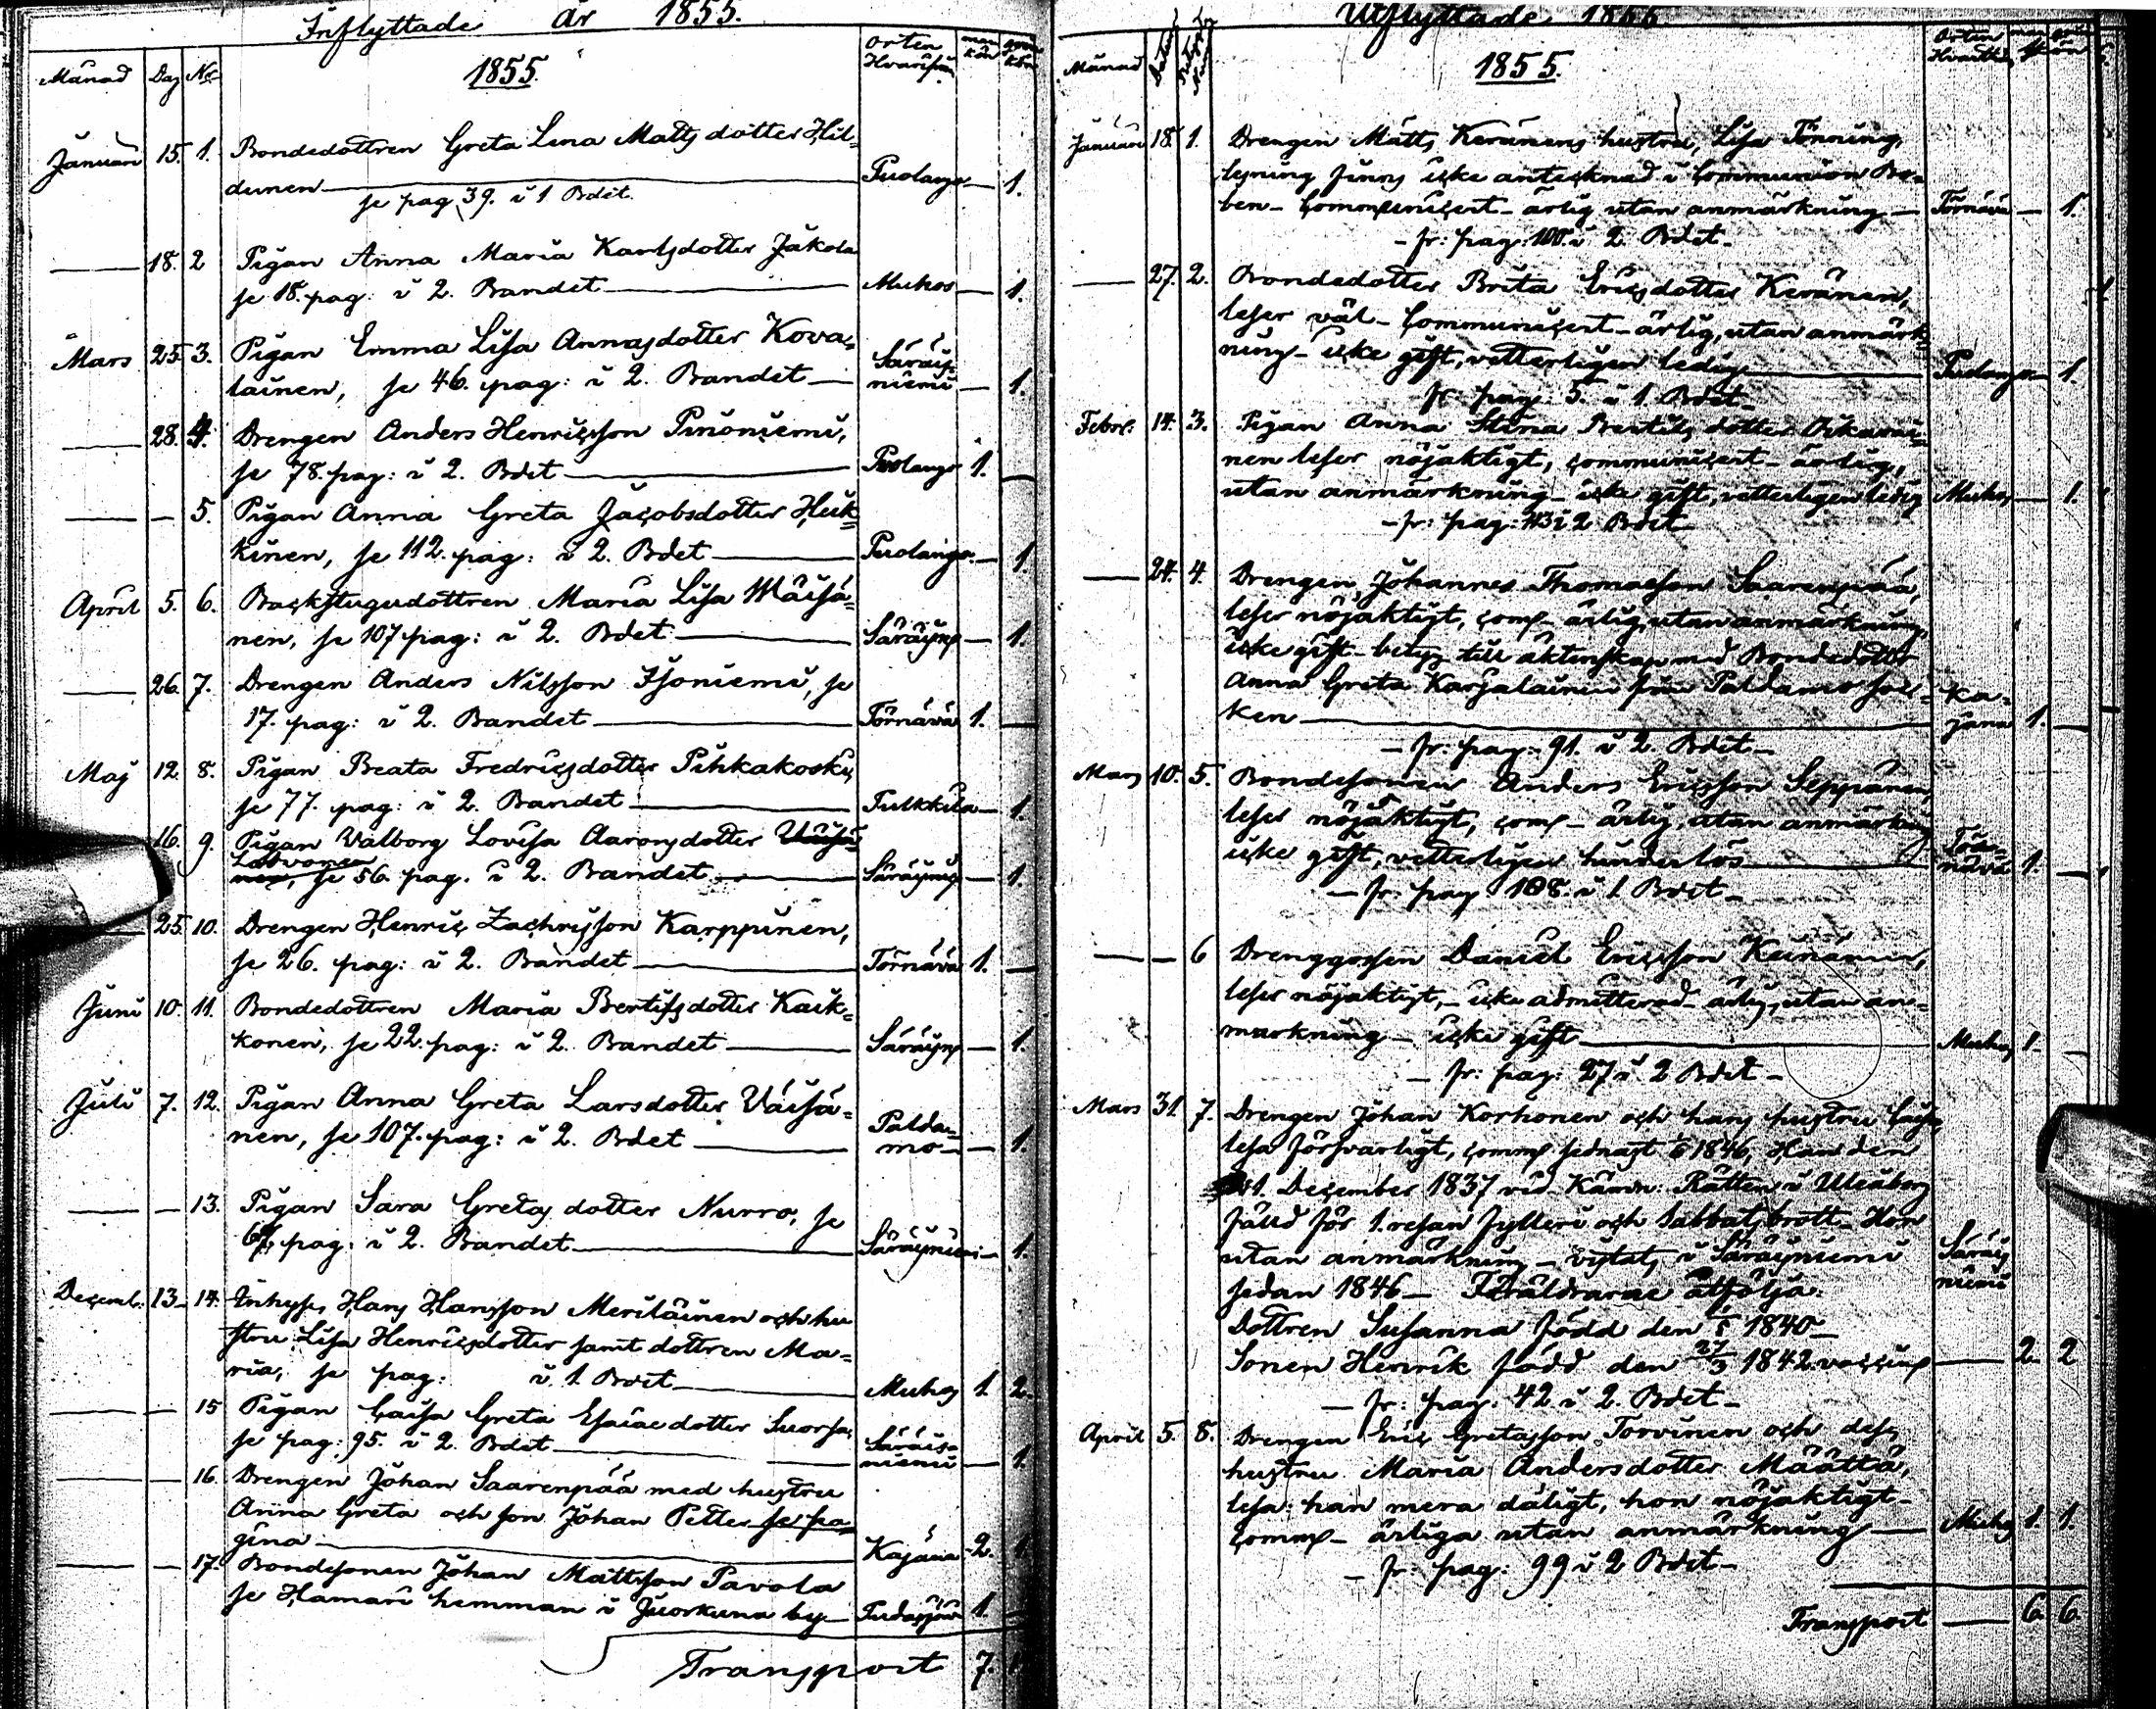 Inflyttade år 1855.
Månad Dag No 1855. Orten Hvarifrån man kön qvin kön
Januari 15. 1. Bondedottren Greta Lena Matts dotter Hil-
dunen Puolango 1.
se pag 39. i 1 Bdet.
18. 2 Pigan Anna Maria Karlsdotter Jakola
se 18. pag: i 2. Bandet Muhos 1.
Mars 25. 3. Pigan Emma Lisa Annasdotter Kova-
lainen, se 46. pag: i 2. Bandet Säräis-
niemi 1.
28. 4. Drengen Anders Henricsson Pinoniemi,
se 78. pag: i 2. Bdet Puolango 1.
5. Pigan Anna Greta Jacobsdotter Heik-
kinen, se 112. pag: i 2. Bdet Puolango 1.
April 5. 6. Backstugudottren Maria Lisa Wäisä-
nen, se 107 pag: i 2. Bdet Säräisn 1.
26. 7. Drengen Anders Nilsson Isoniemi, se
17. pag: i 2. Bandet Törnävä 1.
Maj 12. 8. Pigan Beata Fredricsdotter Pihkakoski,
se 77. pag: i 2. Bandet Pulkkila 1.
16. 9. Pigan Walborg Lovisa Aaronsdotter Väisä-
Latvonen
nen, se 56. pag. i 2. Bandet Säräisn 1.
25. 10. Drengen Henric Zachrisson Karppinen,
se 26. pag: i 2. Bandet Törnävä 1.
Juni 10. 11. Bondedottren Maria Bertilsdotter Kaik-
konen, se 22. pag: i 2. Bandet Säräisn 1.
Juli 7. 12. Pigan Anna Greta Larsdotter Väisä-
nen, se 107. pag: i 2. Bdet Palda-
mo 1.
13. Pigan Sara Gretas dotter Nurro, se
67. pag: i 2. Bandet Säräisniemi 1.
Decemb. 13. 14. Inhyses Hans Hansson Meriläinen och hu
stru Lisa Henricsdotter samt dottren Ma-
ria, se pag: i 1. Bdet Muhos 1. 2.
15 Pigan Caisa Greta Esaiae dotter Suorsa,
se pag: 95. i 2. Bdet Säräis-
niemi 1.
16. Drengen Johan Saarenpää med hustru
Anna Greta och son Johan Petter se pa-
gina Kajana 2. 1.
17. Bondesonen Johan Mattsson Pavola
se Hamari hemman i Juorkuna by Pudasjärvi 1.
Transport 7.
Utflyttade 1855
Månad 1855. Orten Hvarthän
Januari 18. 1. Drengen Matts Keränens hustru, Lisa Tönning,
lesning finns icke antecknad i Communion Bo-
ken - Communicert - ärlig utan anmärkning Törnävä 1.
- fr: pag: 100. i 2. Bdet -
27. 2. Bondedotter Brita Ericsdotter Keränen,
leser väl - Communicert - ärlig, utan anmärk-
ning - icke gift, vetterligen ledig Puolango 1.
fr: pag: 5. i 1 Bdet -
Febr: 14. 3. Pigan Anna Stina Bertils dotter Oikarai-
nen leser nöjaktigt, communicert - ärlig,
utan anmärkning - icke gift, vetterligen ledig Muhos 1.
- fr: pag: 113 i 2 Bdet
24. 4. Drengen Johannes Thomasson Saarenpää,
leser nöjaktigt, comm - ärlig, utan anmärkning,
icke gift - betyg till äktenskap med Bondedotter
Anna Greta Karjalainen från Paldamo soc- Ka-
ken jana 1.
- fr: pag: 91. i 2. Bdet -
Mars 10. 5. Bondesonen Anders Ericsson Seppänen,
leser nöjaktigt, comm - ärlig, utan anmärkning
icke gift, vetterligen hinderlös Tör-
nävä 1.
- fr: pag 108. i 1. Bdet -
6 Drenggossen Daniel Ericsson Keinänen,
leser nöjaktigt, - icke admitterad - ärlig, utan an-
märkning - icke gift Muhos 1.
- fr: pag: 27 i 2 Bdet -
Mars 31. 7. Drengen Johan Korhonen och hans hustru Caisa,
lesa försvarligt, comm sednast 1846, Han den
21. December 1837 vid Kämn: Rätten i Uleåborg
fälld för 1. resan fylleri och Sabbatsbrott - Hon
utan anmärkning - vistats i Säräisniemi Säräis
sedan 1846 - Föräldrarne åtfölja niemi
Dottren Susanna född den 1840 -
Sonen Henrik född den 27/3 1842 vaccine 2. 2
- fr: pag: 42 i 2. Bdet -
April 5. 8. Drengen Eric Gretasson Torvinen och dess
hustru Maria Andersdotter Määttä,
lesa: han mera dåligt, hon nöjaktigt -
comm - ärliga utan anmärkning Muhos 1. 1.
- fr: pag: 99 i 2 Bdet -
Transport 6. 6.